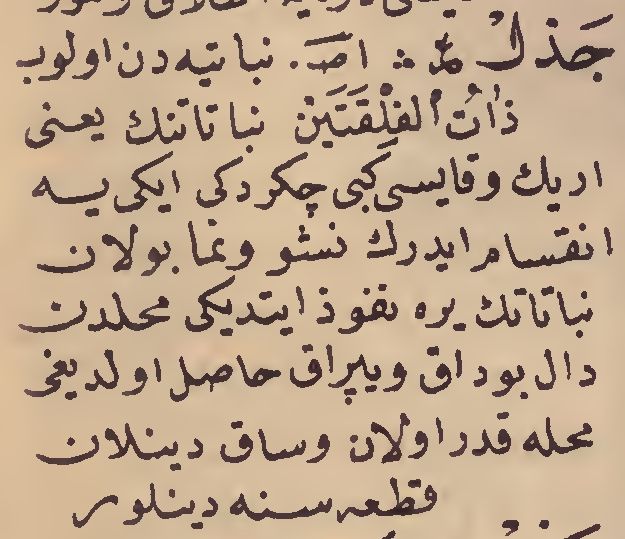 جَذْلْ اصـ . نباتيه دن اولوب
ذٰاتُ ٱلفِلْقَتَيَنْ نباتاتنك يعنى
اريك وقايسى كبى چكردكى ايكى يه
انقسام ايدرك نشو ونما بولان
نباتاتك يره نفوذ ايتديكى محلدن
دال بوداق ويپراق حاصل اولديغى
محله قدر اولان وساق دينلان
قطعه سنه دينلور